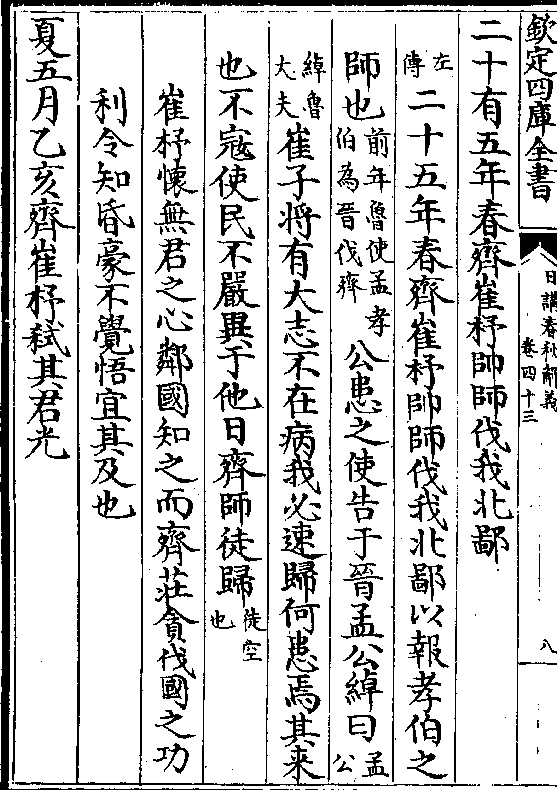 欽定四庫全書
日講春秋解義
卷四十三
八
二十有五年春齊崔杼帥師伐我北鄙
左傳二十五年春齊崔杼帥師伐我北鄙以報孝伯之
師也前年魯使孟孝伯為晉伐齊公患之使告于晉孟公綽曰孟公
綽魯大夫崔子將有大志不在病我必速歸何患焉其來
也不寇使民不嚴異于他日齊師徒歸徒空也
崔杼懷無君之心鄰國知之而齊莊貪伐國之功
利令知昏豪不覺悟宜其及也
夏五月乙亥齊崔杼弒其君光